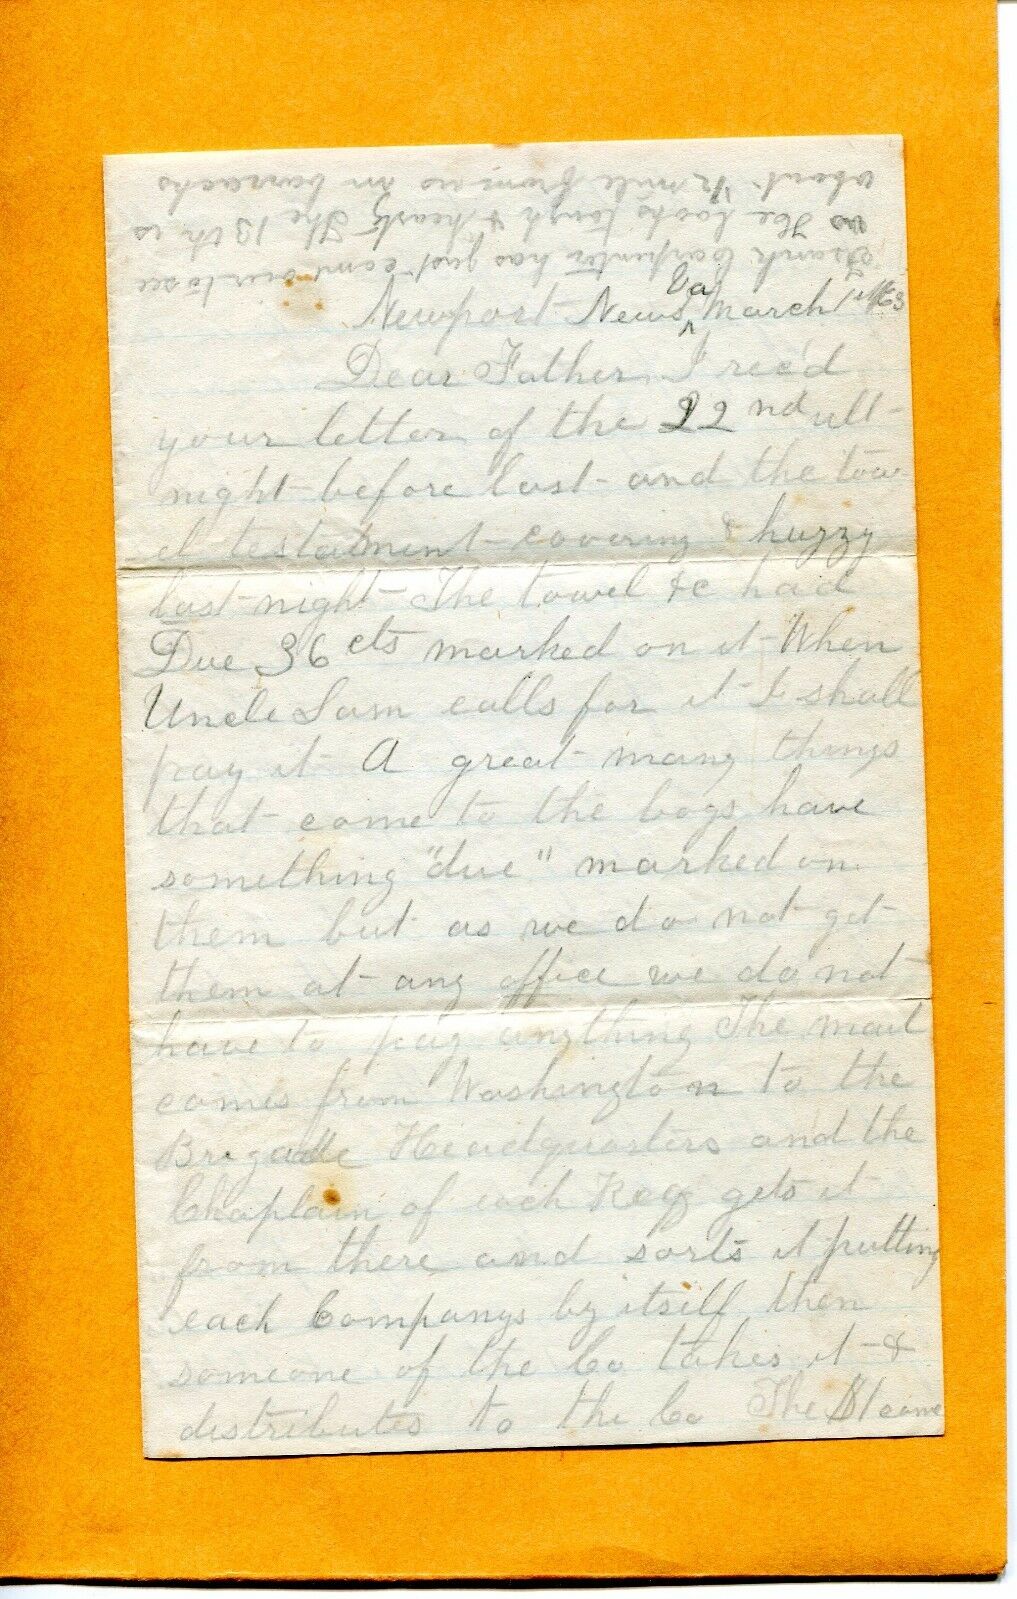 Frank Carpenter has just come over to see
us He looks tough & hearty The 13th is
about ½ mile from us in barracks
Newport News Va March 1st /63
Dear Father I rec'd
your letter of the 22nd ult
night before last and the tow
el testament covering & huzzy
last night The towel &c had
Due 36 cts marked on it When
Uncle Sam calls for it I shall
pay it A great many things
that come to the boys have
something "due" marked on
them but as we do not get
them at any office we do not
have to pay anything The mail
comes from Washington to the
Brigade Headquarters and the
Chaplain of each Reg gets it
from there and sorts it putting
each Companys by itself then
someone of the Co takes it &
distributes to the Co The $1 came